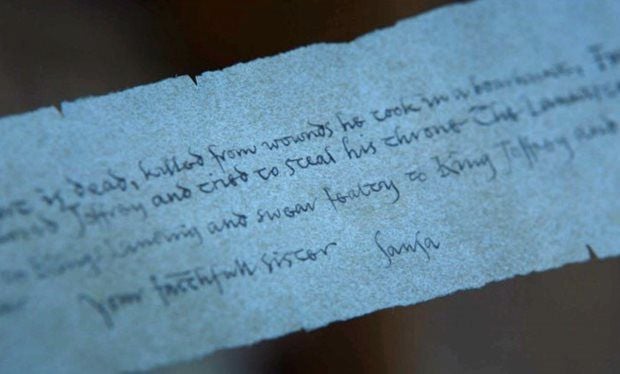 is dead, killed from wounds he took in a boar hunt.
Joffrey and tried to steal his throne. The Lannisters
Kings Landing and swear fealty to King Joffrey and
Your faithfull sister Sansa